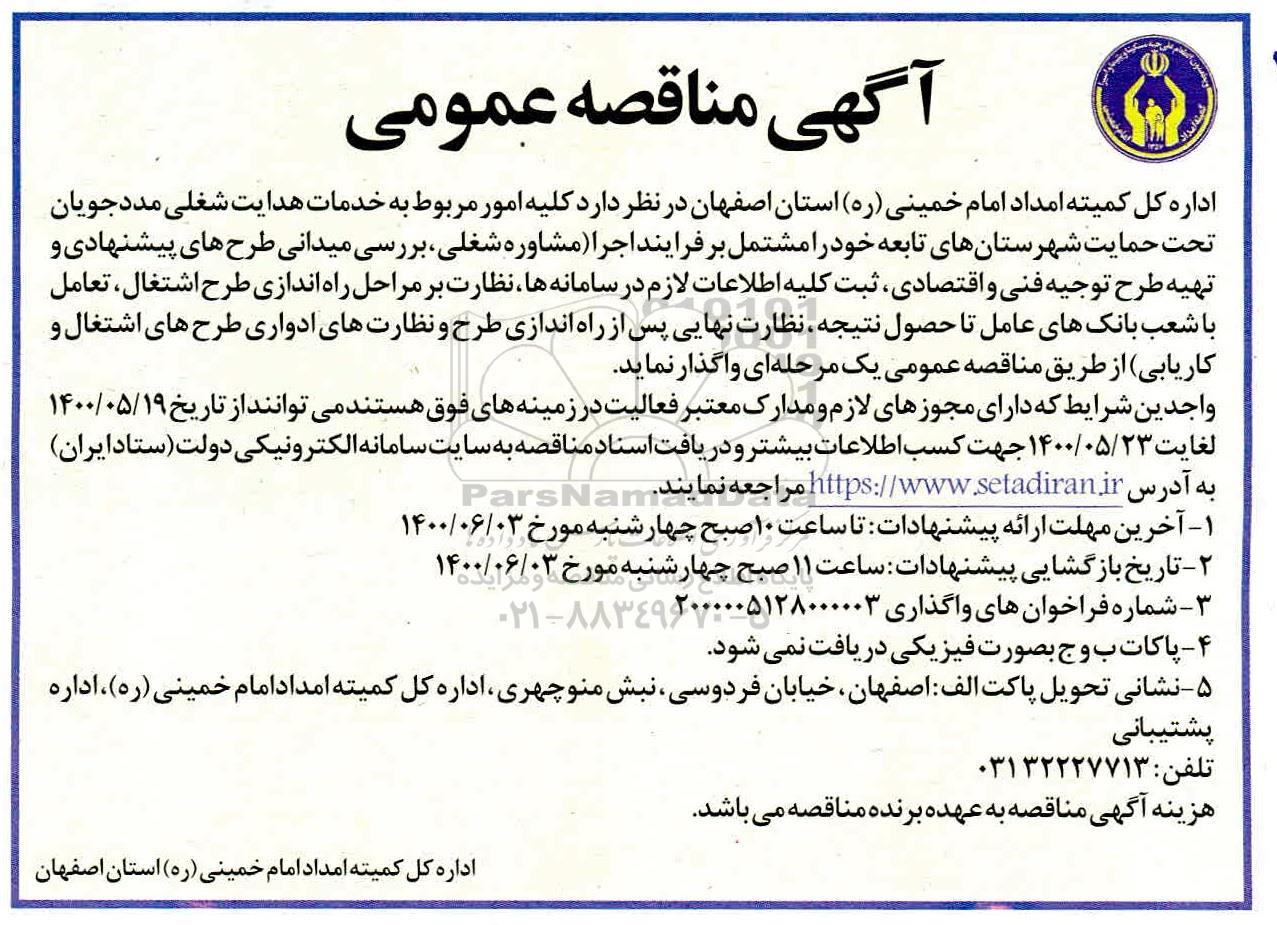 آگهی مناقصه عمومی
اداره کل کمیته امداد امام خمینی (ره) استان اصفهان در نظر دارد کلیه امور مربوط به خدمات هدایت شغلی مددجویان
تحت حمایت شهرستان‌های تابعه خود را مشتمل بر فرایند اجرا (مشاوره شغلی، بررسی میدانی طرح‌های پیشنهادی و
تهیه طرح توجیه فنی و اقتصادی، ثبت کلیه اطلاعات لازم در سامانه‌ها، نظارت بر مراحل راه‌اندازی طرح اشتغال، تعامل
با شعب بانک های عامل تا حصول نتیجه، نظارت نهایی پس از راه اندازی طرح و نظارت های ادواری طرح های اشتغال و
کاریابی) از طریق مناقصه عمومی یک مرحله‌ای واگذار نماید.
واجدین شرایط که دارای مجوزهای لازم و مدارک معتبر فعالیت در زمینه های فوق هستند می توانند از تاریخ ۱۴۰۰/۰۵/۱۹
لغایت ۱۴۰۰/۰۵/۲۳ جهت کسب اطلاعات بیشتر و دریافت اسناد مناقصه به سایت سامانه الکترونیکی دولت (ستاد ایران)
به آدرس https://www.setadiran.ir مراجعه نمایند.
۱- آخرین مهلت ارائه پیشنهادات: تا ساعت ۱۰ صبح چهارشنبه مورخ ۱۴۰۰/۰۶/۰۳
۲- تاریخ بازگشایی پیشنهادات: ساعت ۱۱ صبح چهارشنبه مورخ ۱۴۰۰/۰۶/۰۳
۳- شماره فراخوان های واگذاری ۲۰۰۰۰۰۵۱۲۸۰۰۰۰۰۳
۴- پاکات ب و ج بصورت فیزیکی دریافت نمی شود.
۵- نشانی تحویل پاکت الف: اصفهان، خیابان فردوسی، نبش منوچهری، اداره کل کمیته امداد امام خمینی (ره)، اداره
پشتیبانی
تلفن: ۰۳۱۳۲۲۲۷۷۱۳
هزینه آگهی مناقصه به عهده برنده مناقصه می باشد.
اداره کل کمیته امداد امام خمینی (ره) استان اصفهان
ParsNamadData
پایگاه اطلاع رسانی مناقصه و مزایده
۰۲۱-۸۸۳۴۹۶۷۰-۵